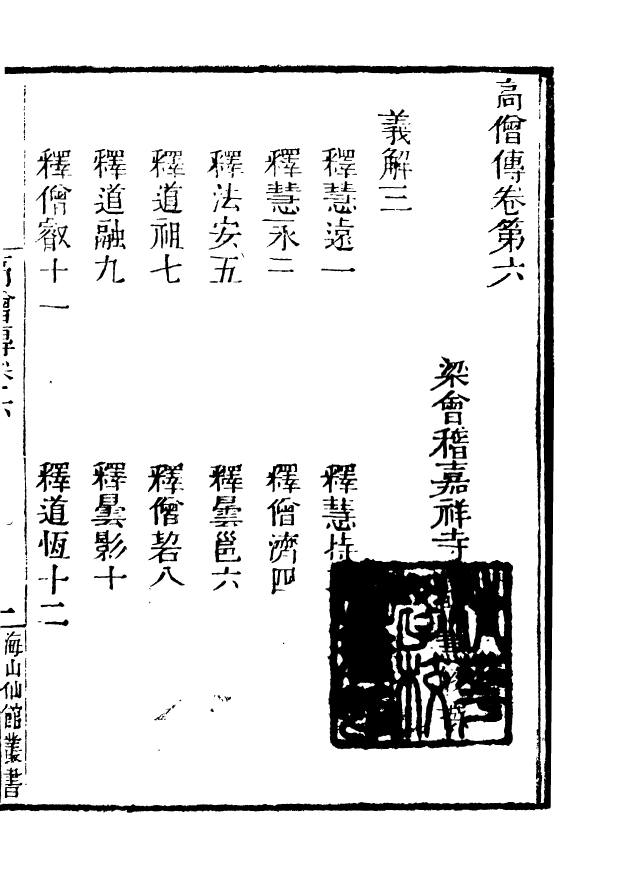 高僧傳卷第六
梁會稽嘉祥寺
義解三
釋慧遠一
釋慧持
釋慧永三
釋僧濟四
釋法安五
釋曇邕六
釋道祖七
釋僧䂮八
釋道融九
釋曇影十
釋僧叡十一
釋道恆十二
高僧傳卷六
一
海山仙館叢書